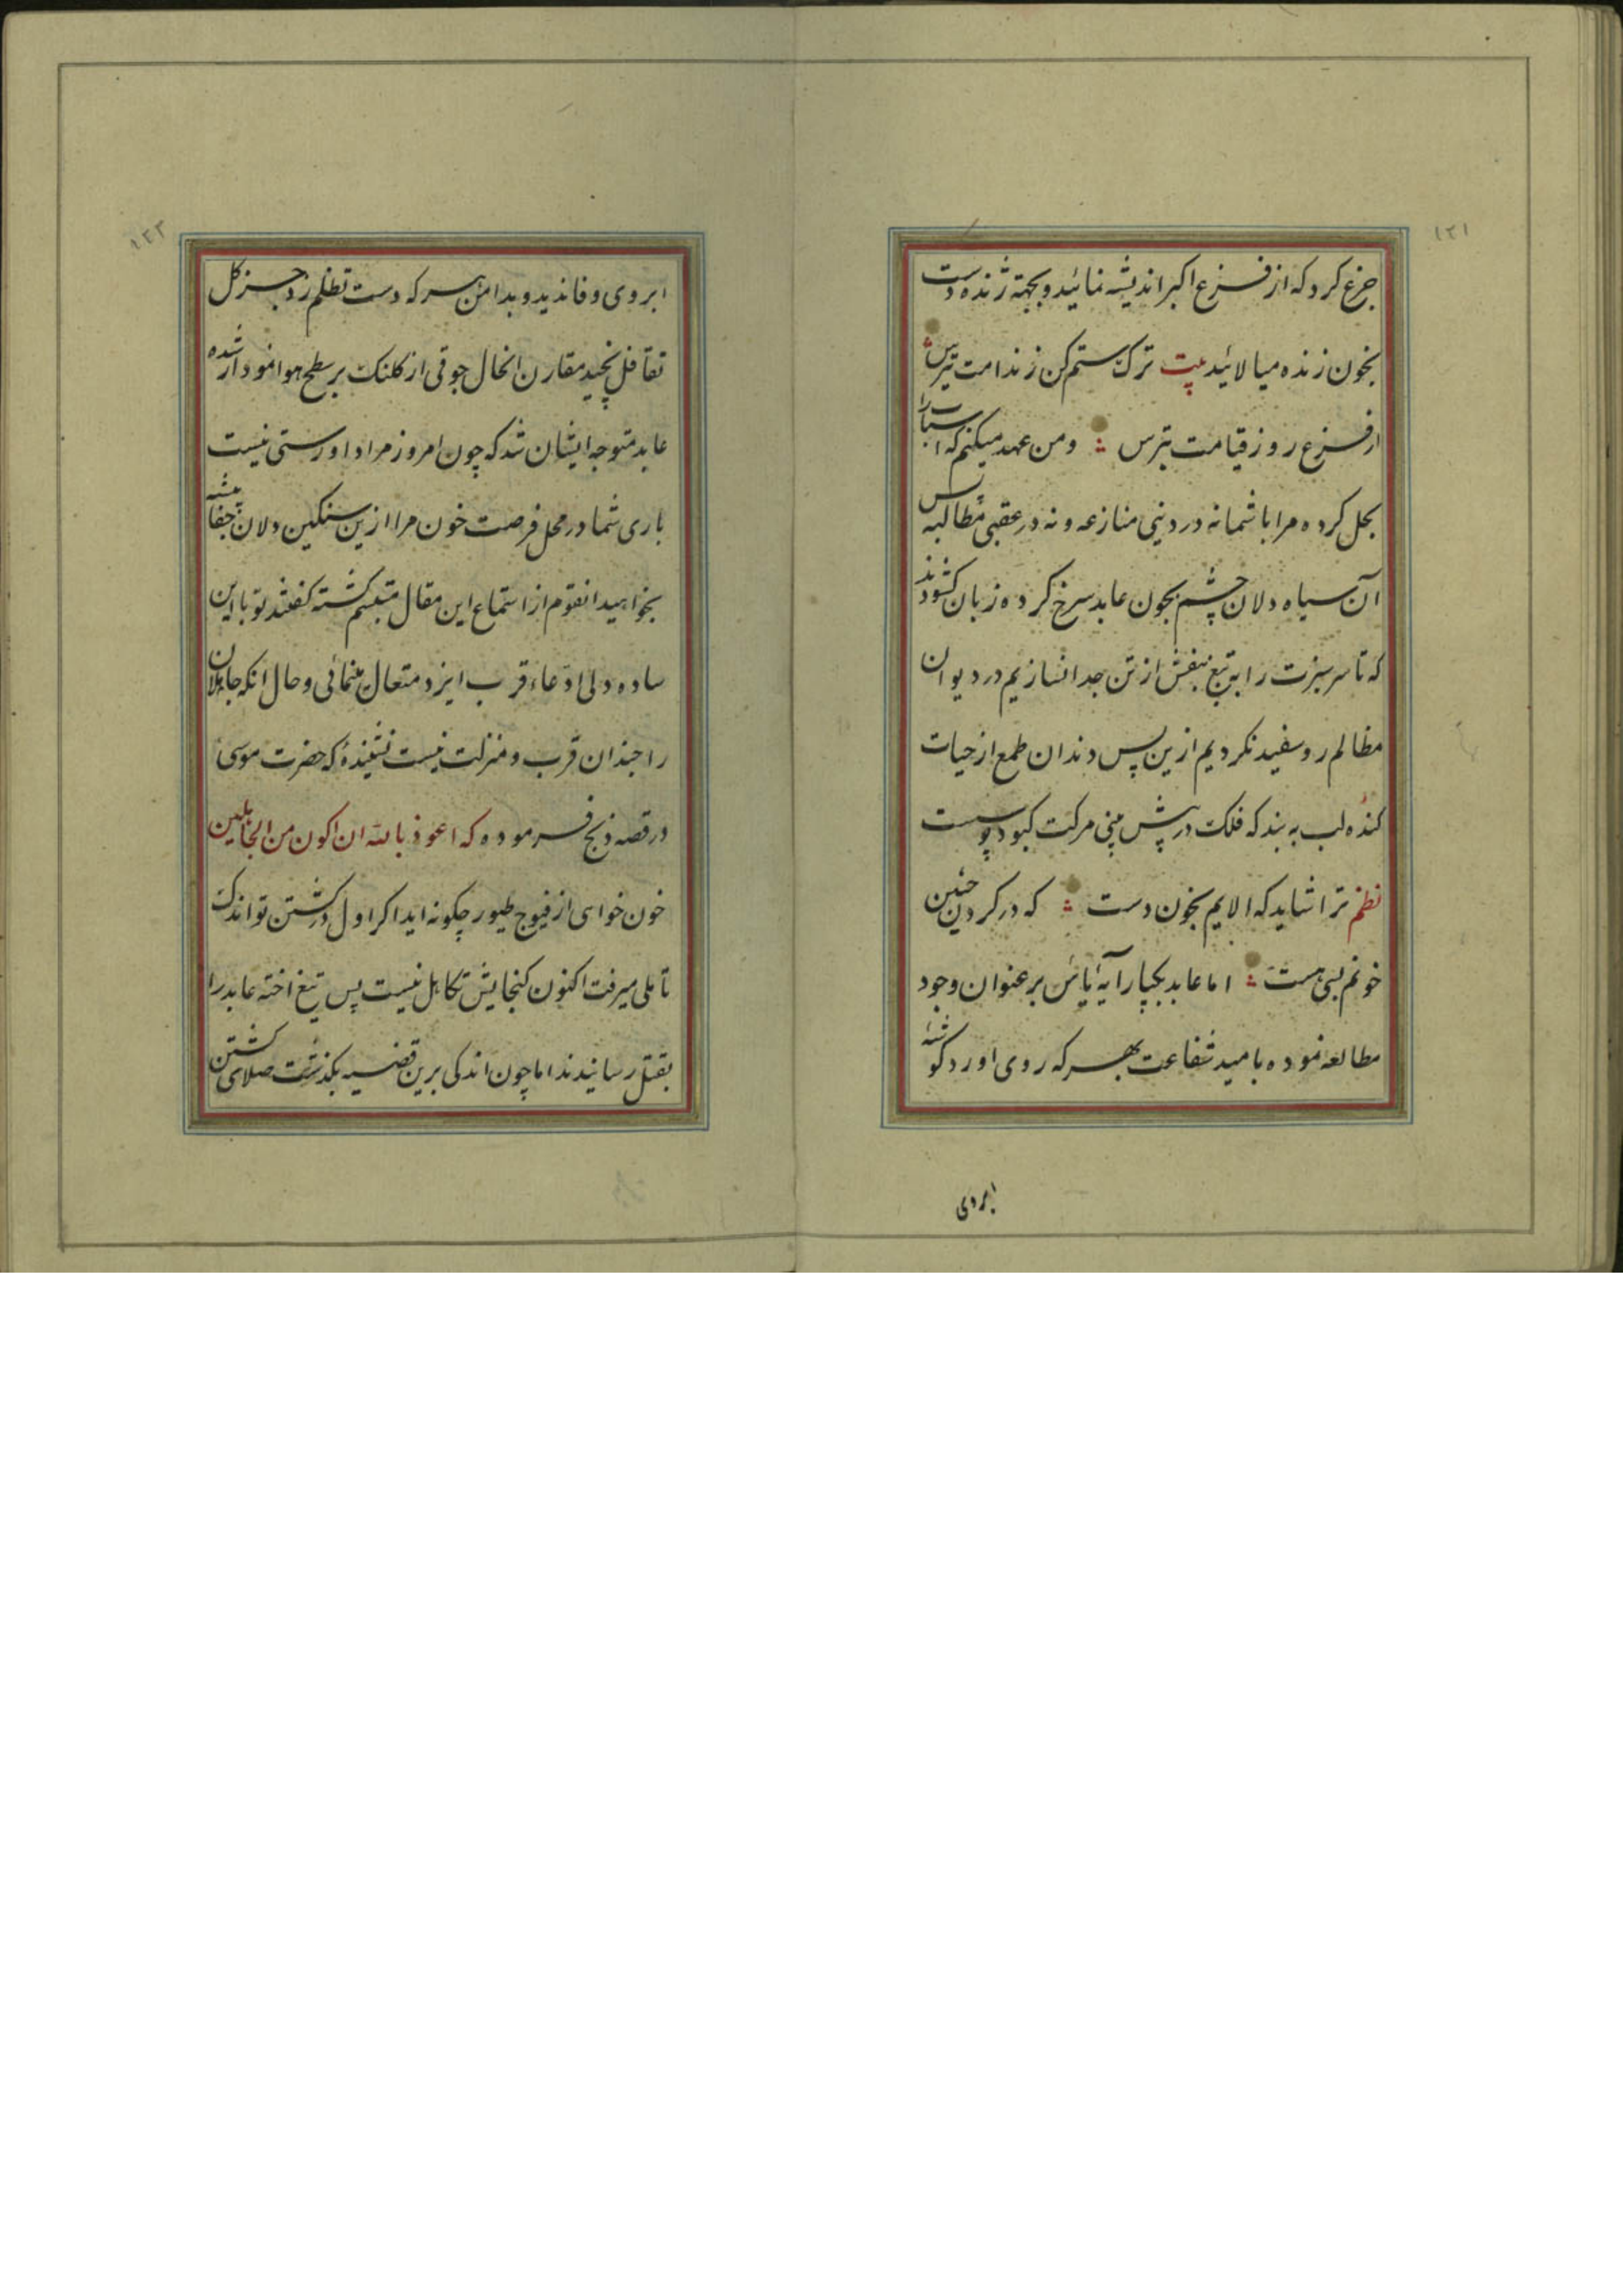 ۱۲۱
جزع کرد که از فزع اکبر اندیشه نمائید و بجهته ژنده دست
بخون زنده میالائید بیت ترک ستم کن ز ندامت بترس
از فزع روز قیامت بترس و من عهد میکنم که اسباب را
بحل کرده مرا با شما نه در دنیی منازعه و نه در عقبی مطالبه پس
آن سیاه دلان چشم بخون عابد سرخ کرده زبان کشودند
که تا سر سبزت را بتیغ بنفش از تن جدا نسازیم در دیوان
مظالم رو سفید نکردیم ازین پس دندان طمع از حیات
کنده لب به بند که فلک در پیش مرکت کبود پوست
نظم ترا شاید که الایم بخون دست که در کردن چنین
خونم بسی هست اما عابد بیچاره آیه یأس بر عنوان وجود
مطالعه نموده بامید شفاعت بهر که روی اورد کوشه
ابروی
۱۲۲
ابروی وفا ندید و بدامن هر که دست تظلم زد جز کل
تغافل نچید مقارن انحال جوقی از کلنک بر سطح هوا نمودار شده
عابد متوجه ایشان شد که چون امروز مرا داورستی نیست
باری شما در محل فرصت خون مرا ازین سنکین دلان جفا پیشه
بخواهید انقوم از استماع این مقال متبسم کشته کفتند تو با این
ساده دلی ادعاء قرب ایزد متعال مینمائی و حال انکه جاهلان
را چندان قرب و منزلت نیست نشنیدهٔ که حضرت موسی
در قصه ذبح فرموده که اعوذ بالله ان اکون من الجاهلین
خون خواهی از فیوج طیور چکونه اید اکر اول در کشتن تو اندک
تأملی میرفت اکنون کنجایش تکاهل نیست پس تیغ اخته عابد را
بقتل رسانیدند اما چون اندکی برین قضیه بکذشت صلای کشتن